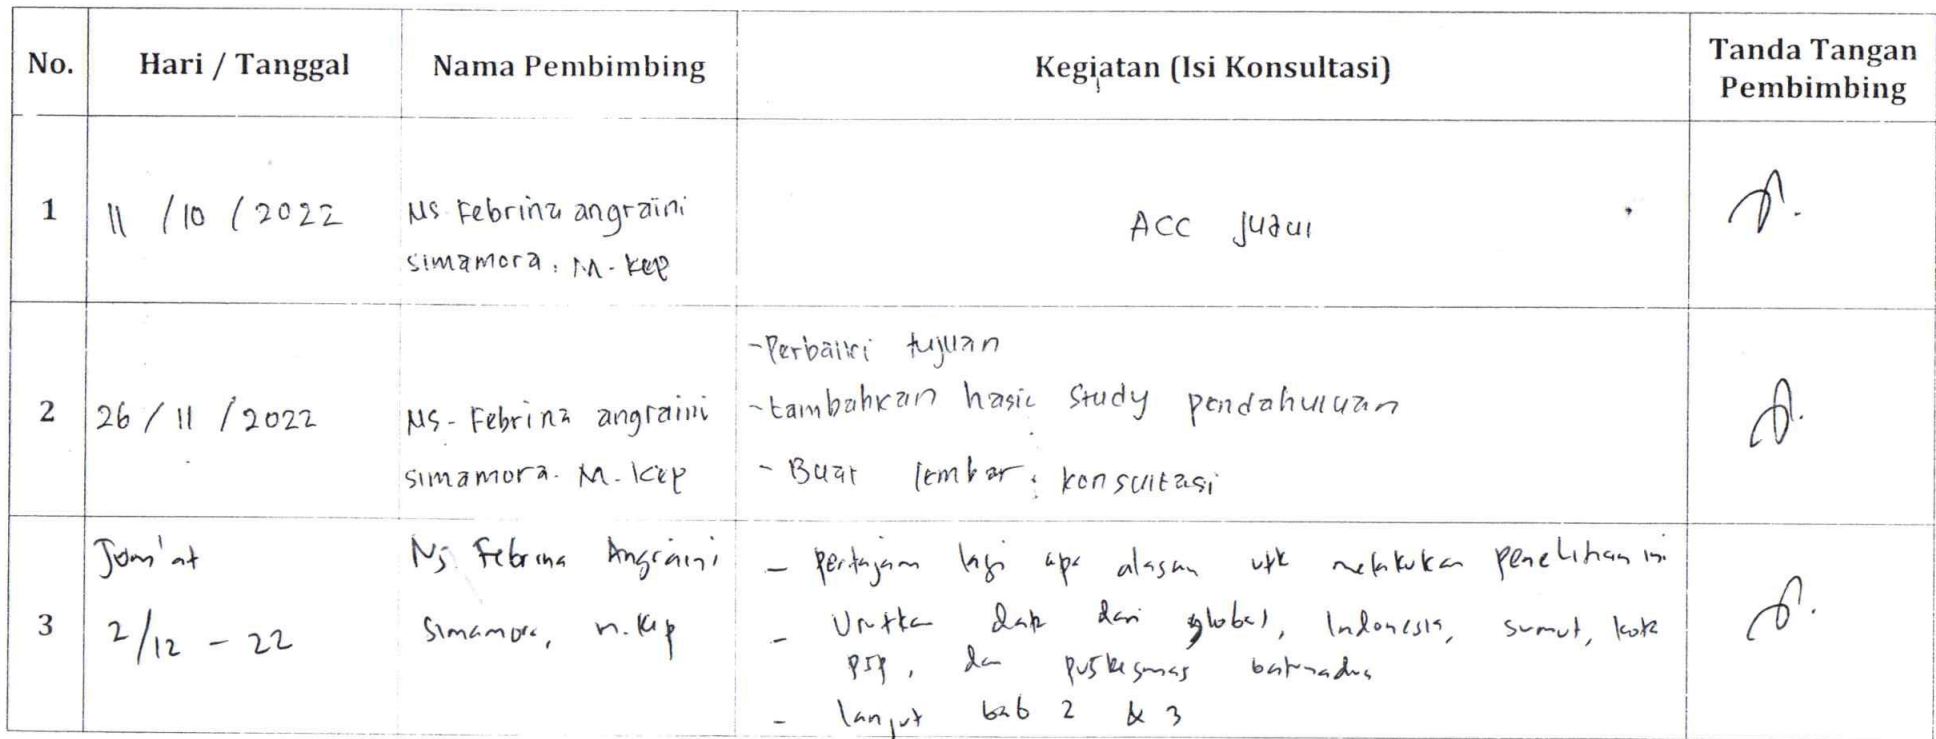 No. Hari / Tanggal Nama Pembimbing Kegiatan (Isi Konsultasi) Tanda Tangan Pembimbing
1 11 /10 /2022 Ns. Febrina angraini
simamora, M. Kep
ACC Judul
2 26 / 11 /2022 Ns. Febrina angraini
simamora. M. Kep
- Perbaiki tujuan
- tambahkan hasil study pendahuluan
- Buat lembar konsultasi
3 Jum'at
2/12 - 22
Ns. Febrina Angraini
Simamora, M.Kep
- Pertajam lagi apa alasan utk melakukan penelitian ini
- Urutkan data dari global, Indonesia, sumut, kota
psp, dan puskesmas batunadua
- lanjut bab 2 & 3